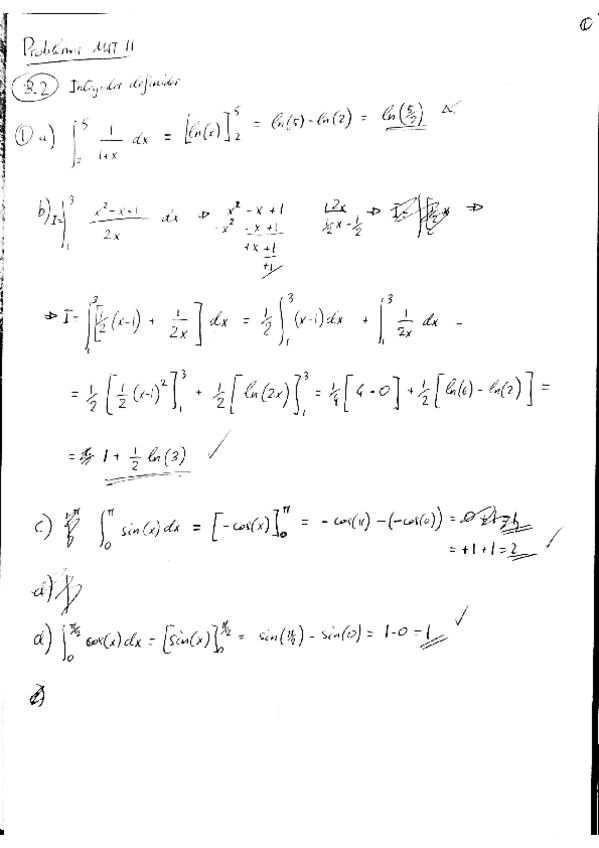 ①
Problemas MAT II
3.2 Integrales definidas
① a) ∫_2^5 1/(1+x) dx = [ln(x)]_2^5 = ln(5) - ln(2) = ln(5/2)
b) I = ∫_1^3 (x²-x+1)/(2x) dx ⇒ x² - x + 1 2x ⇒ ⇒
-x² -x+1 ½x - ½
+x+1
+1
⇒ I = ∫_1^3 [½(x-1) + 1/(2x)] dx = ½ ∫_1^3 (x-1)dx + ∫_1^3 1/(2x) dx =
= ½ [½(x-1)²]_1^3 + ½ [ln(2x)]_1^3 = ¼ [4-0] + ½ [ln(6) - ln(2)] =
= 1 + ½ ln(3) ✓
c) ∫_0^π sin(x)dx = [-cos(x)]_0^π = -cos(π) - (-cos(0)) =
= +1+1 = 2 ✓
d)
d) ∫_0^{π/2} cos(x)dx = [sin(x)]_0^{π/2} = sin(π/2) - sin(0) = 1-0 = 1 ✓